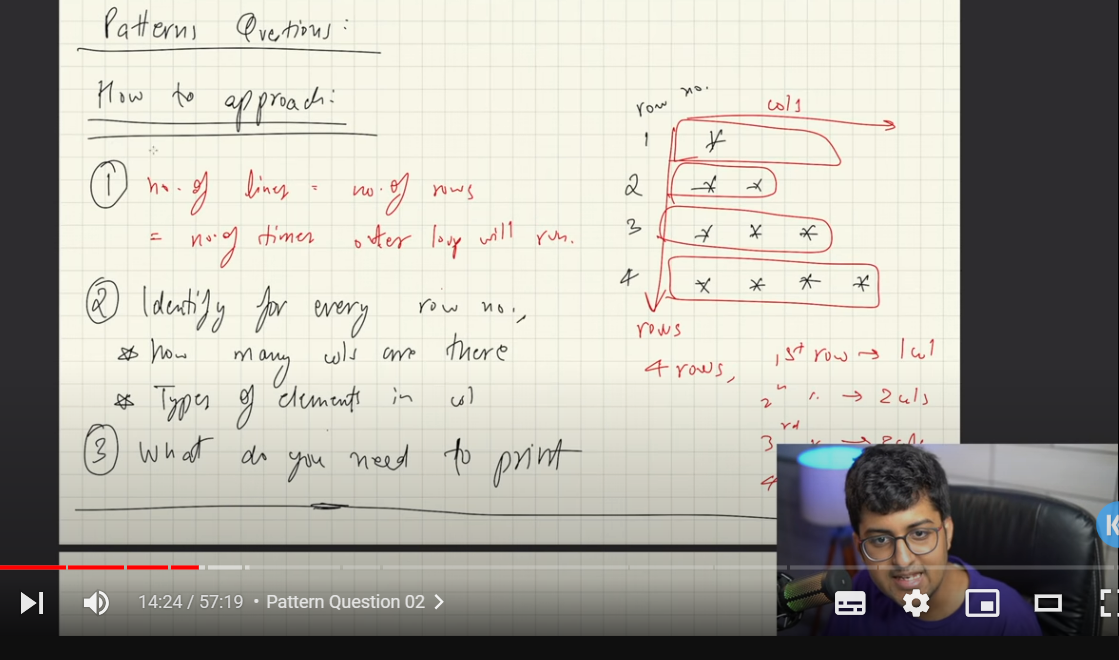 Patterns Questions:
How to approach:
① no. of lines = no. of rows
= no. of times outer loop will run.
② Identify for every row no.,
* how many cols are there
* Types of elements in col
③ What do you need to print
row no.
cols
1 *
2 * *
3 * * *
4 * * * *
rows
4 rows,
1st row → 1 col
2n → 2 cols
3rd →
4
K
14:24 / 57:19 • Pattern Question 02 >